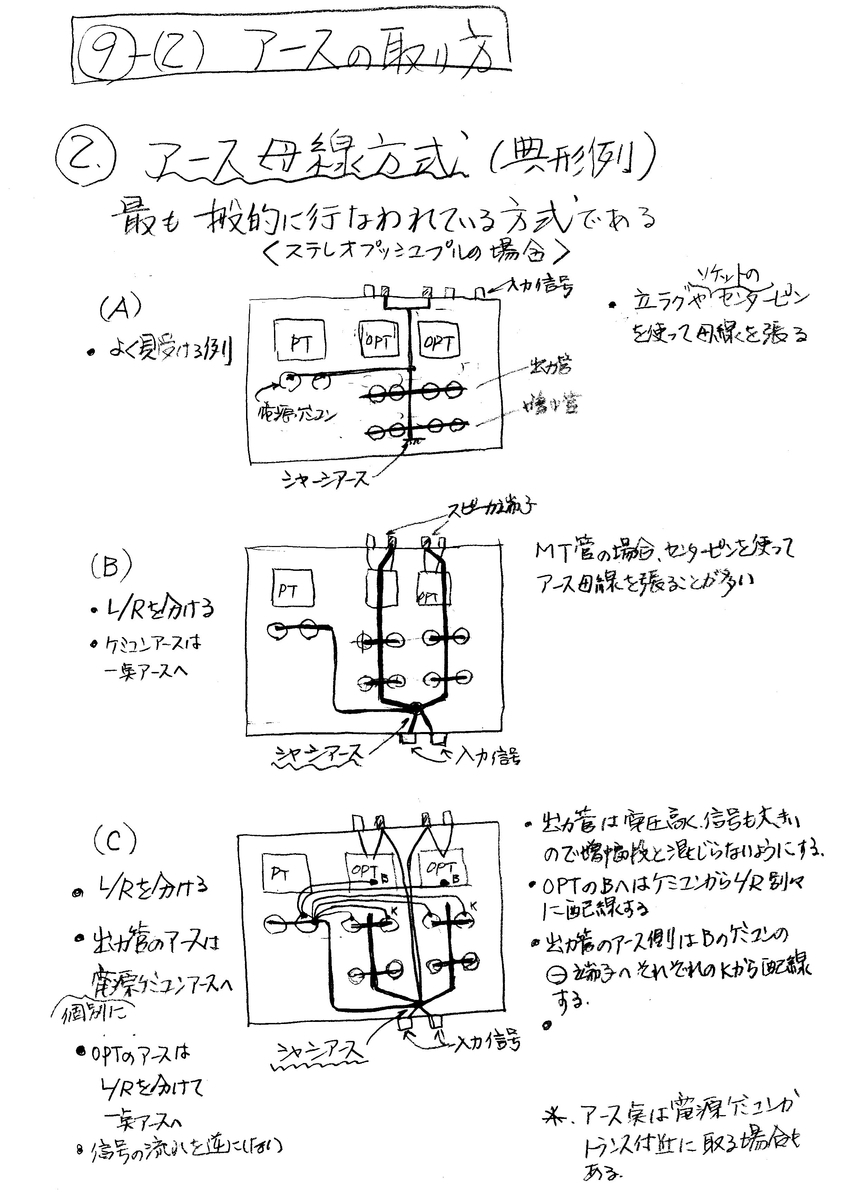 ⑨-(2) アースの取り方
②. アース母線方式 (典形例)
最も一般的に行なわれている方式である
<ステレオプッシュプルの場合>
(A)
• よく見受ける例
入力信号
PT
OPT
OPT
電源ケミコン
出力管
シャーシアース
ソケットの
• 立ラグやセンターピン
を使って母線を張る
(B)
• L/Rを分ける
• ケミコンアースは
一点アースへ
スピーカ端子
PT
OPT
シャーシアース
入力信号
MT管の場合、センターピンを使って
アース母線を張ることが多い
(C)
• L/Rを分ける
• 出力管のアースは
電源ケミコンアースへ
個別に
• OPTのアースは
L/Rを分けて
一点アースへ
• 信号の流れを逆にしない
PT
OPT
B
OPT
B
K
K
シャーシアース
入力信号
• 出力管は電圧高く、信号も大きい
ので増幅段と混じらないようにする.
• OPTのBへはケミコンからL/R別々
に配線する
• 出力管のアース側はBのケミコンの
⊖端子へそれぞれのKから配線
する.
※. アース点は電源ケミコンか
トランス付近に取る場合も
ある.